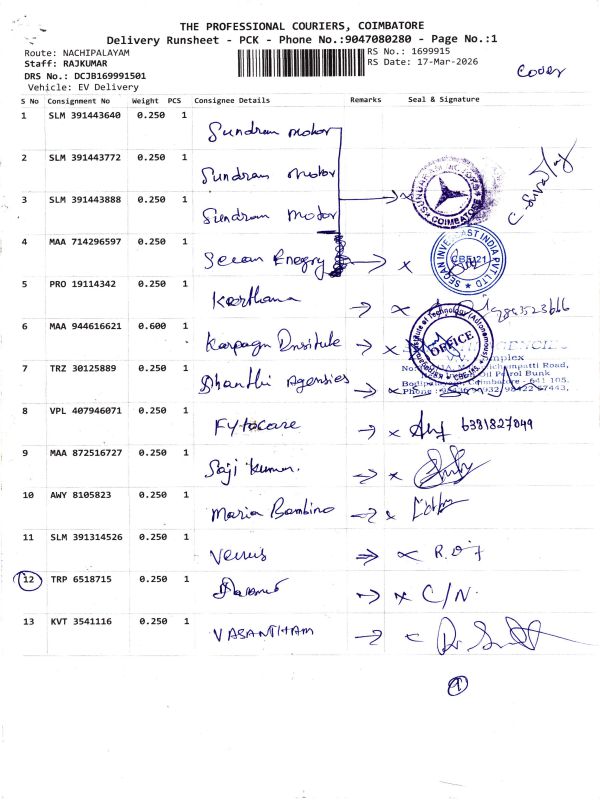 THE PROFESSIONAL COURIERS, COIMBATORE
Delivery Runsheet - PCK - Phone No.:9047080280 - Page No.:1
Route: NACHIPALAYAM
RS No.: 1699915
Staff: RAJKUMAR
RS Date: 17-Mar-2026
DRS No.: DCJB169991501
Vehicle: EV Delivery
Cover
S No Consignment No Weight PCS Consignee Details Remarks Seal & Signature
1 SLM 391443640 0.250 1 Sundram motor
2 SLM 391443772 0.250 1 Sundram motor
3 SLM 391443888 0.250 1 Sundram motor
SUNDARAM MOTORS
COIMBATORE
4 MAA 714296597 0.250 1 Secan Enegry
SEOAN INVECAST INDIA PVT LTD
5 PRO 19114342 0.250 1 Keerthana
6 MAA 944616621 0.600 1 Karpagn Institute
Institute of Technology (Autonomous)
OFFICE
7 TRZ 30125889 0.250 1 Dhanthi Agensies
Oil Petrol Bunk
Coimbatore - 641 105.
8 VPL 407946071 0.250 1 Fytocare 6381827049
9 MAA 872516727 0.250 1 Saji kumar.
10 AWY 8105823 0.250 1 Maria Bambino
11 SLM 391314526 0.250 1 Venus
12 TRP 6518715 0.250 1 C/N.
13 KVT 3541116 0.250 1 VASANTHAM